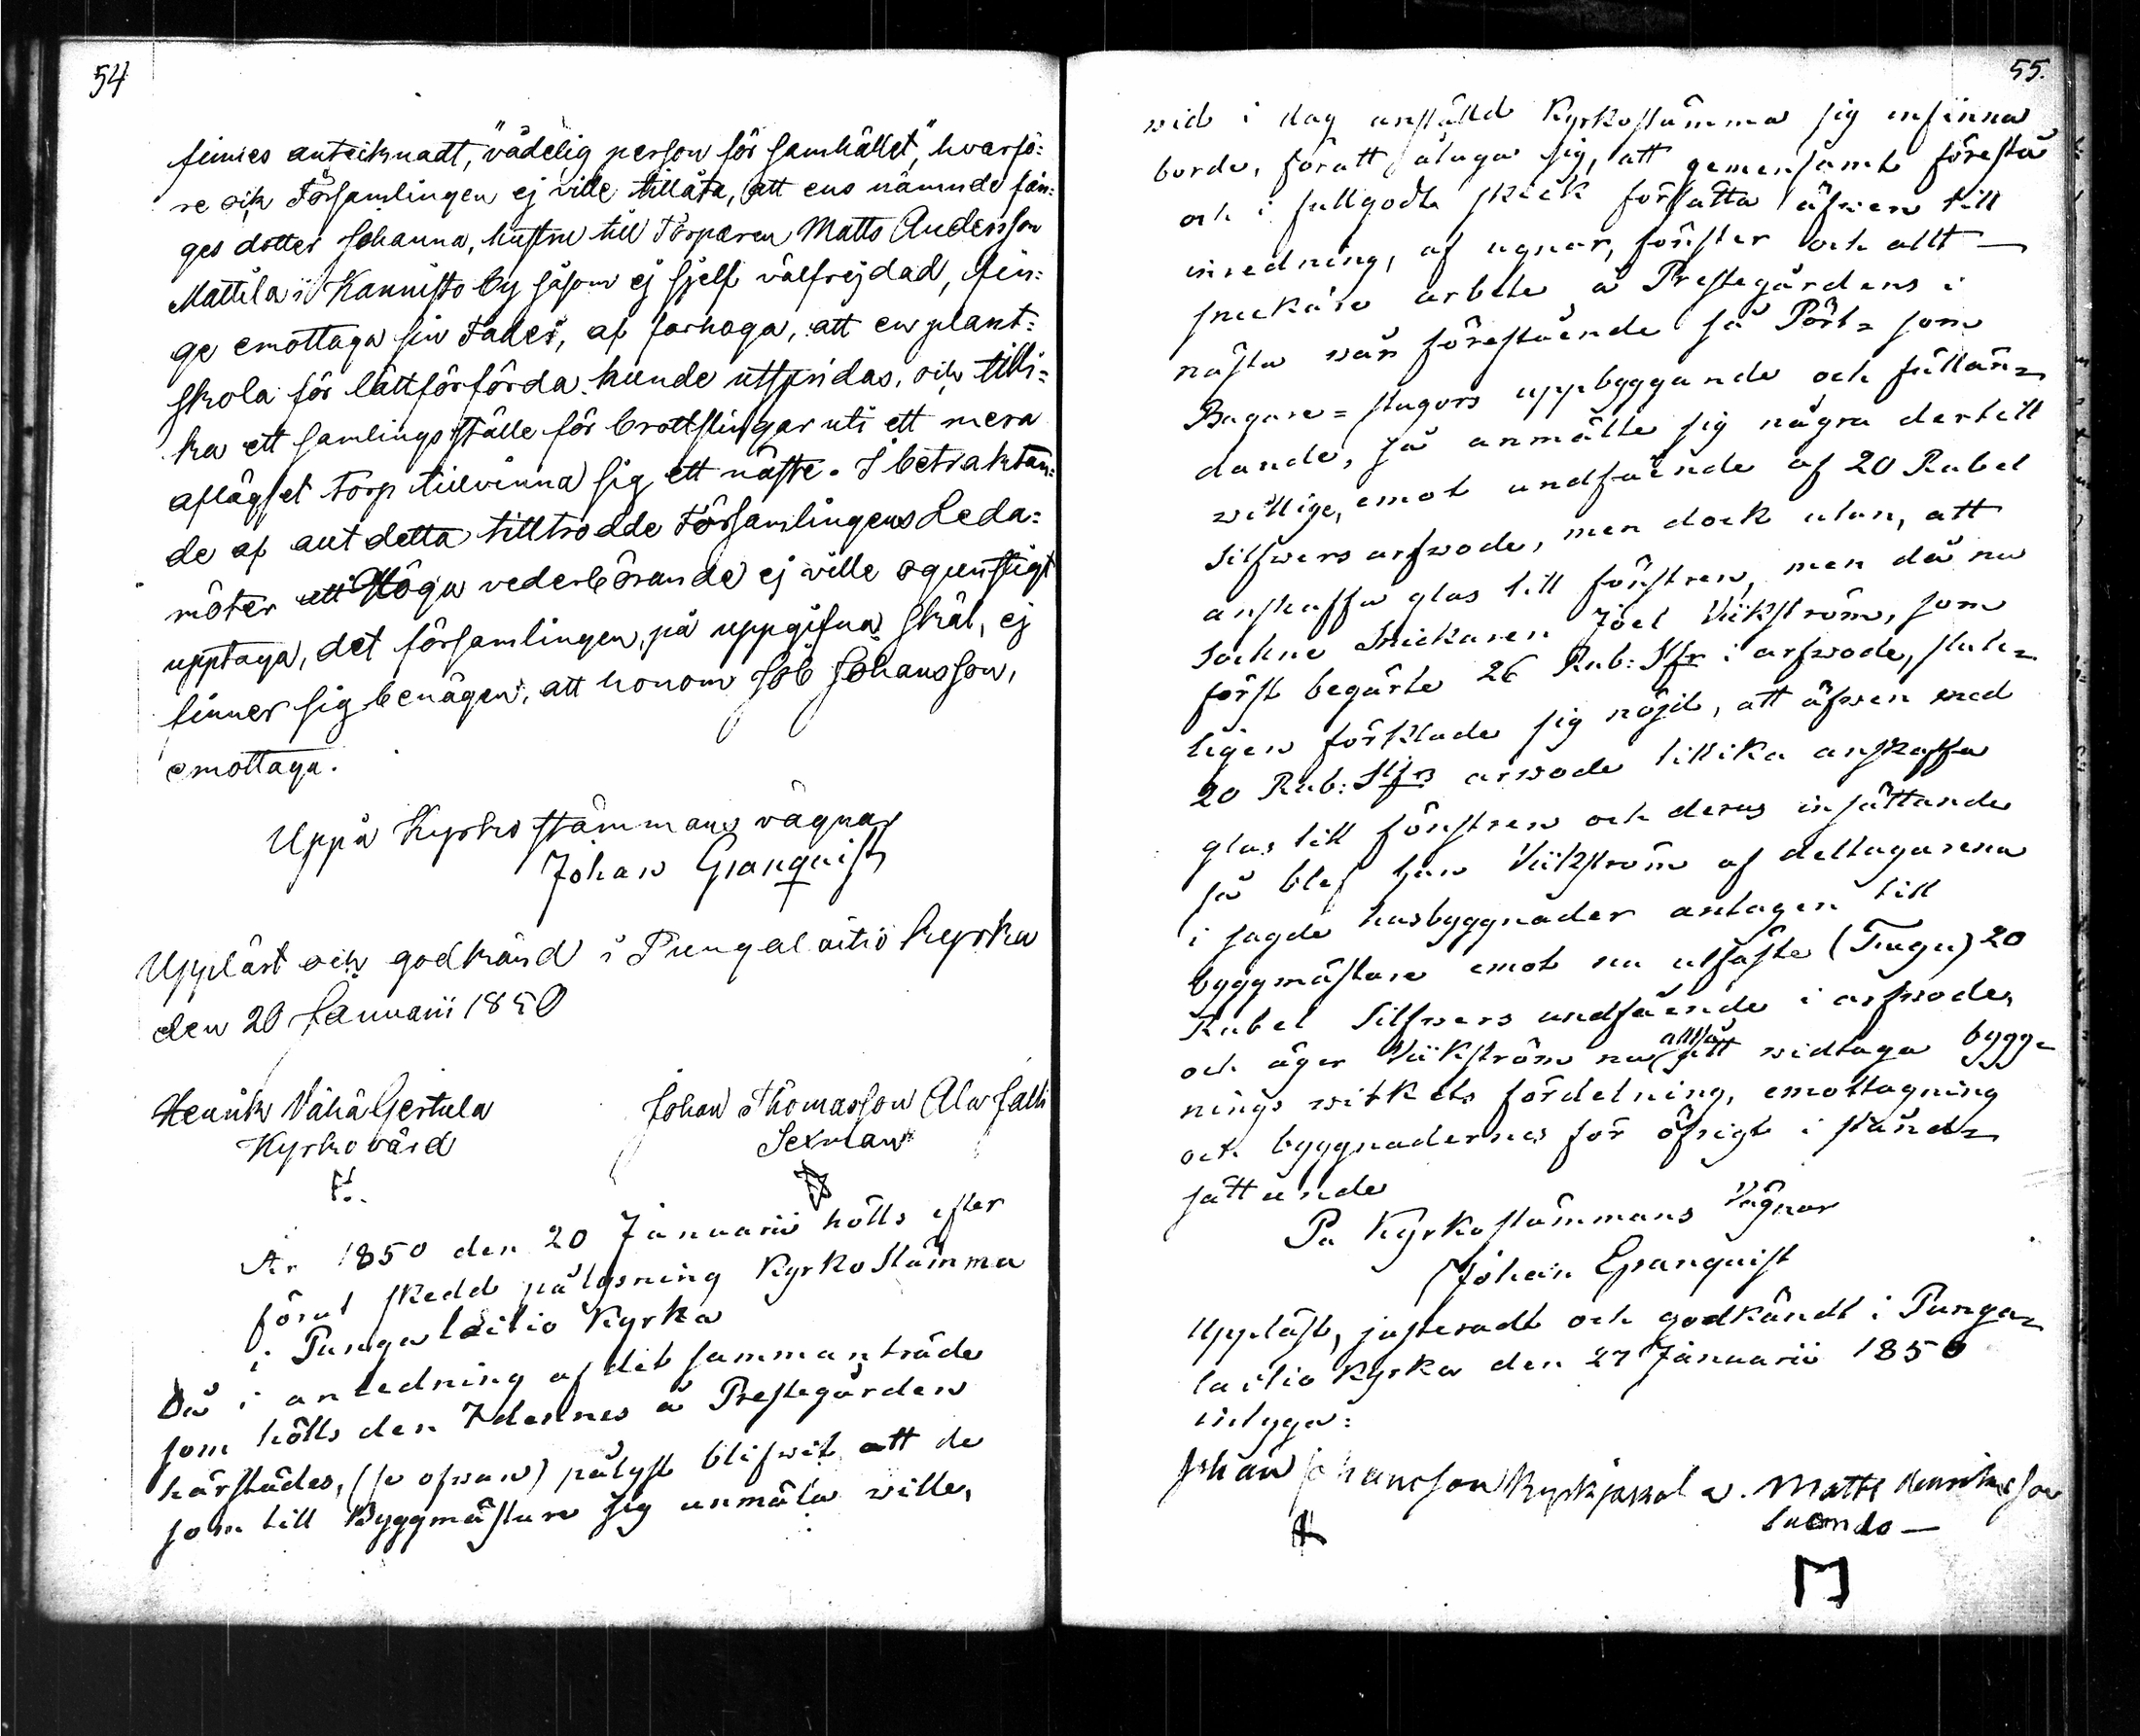 54
finnes antecknadt, "vådelig person för samhället", hvarfö=
re och Församlingen ej ville tillåta, att ens nämnde fån=
ges dotter Johanna, hustru till Torparen Matts Andersson
Mattila i Kannisto by såsom ej sjelf välfrejdad, fin=
ge emottaga sin Fader, af farhoga, att en plant=
skola för lättförförda kunde utspridas, och tilli=
ka ett samlingsställe för brottslingar uti ett mera
aflägset torp tillvinna sig ett näste. I betraktan=
de af allt detta tilltrodde Församlingens Leda=
möter att Höga vederbörande ej ville ogunstigt
upptaga, det församlingen, på uppgifna skäl, ej
finner sig benägen, att honom Job Johansson,
emottaga.
Uppå Kyrkostämmans vägnar
Johan Granquist
Uppläst och godkänd i Pungalaitio kyrka
den 20 Januarii 1850
Henrik Vähä Gertula
Kyrkovärd
Johan Thomasson Ala Jalli
Sexman
År 1850 den 20 Januarii hölls efter
förut skedd pålysning Kyrkostämma
i Pungalaitio Kyrka
Då i anledning af det sammanträde
som hölls den 7 dennes å Prestegården
härstädes, (se ofvan) pålyst blifwit att de
som till Byggmästare sig anmäla wille,
55.
wid i dag anstäld Kyrkostämma sig infinna
borde, för att åtaga sig, att gemensamt förestå
och i fullgodt skick försätta äfwen till
inredning, af ugnar, fönster och allt
snickare arbete å Prestegårdens i
nästa vår förestående så Pört= som
Bagare=stugors uppbyggande och fullän=
dande, så anmälte sig några dertill
willige, emot undfående af 20 Rubel
Silfwers arfwode, men dock utan, att
anskaffa glas till fönstren, men då nu
Sockne Snickaren Joel Wikström, som
först begärte 26 Rub: Slfr i arfwode, slut=
ligen förklade sig nöjd, att äfwen med
20 Rub: Slfrs arwode tillika anskaffa
glas till fönstren och deras insättande
så blef han Wikström af deltagarena
i sagde husbyggnader antagen till
byggmästare emot nu utfäste (Tiugu) 20
Rubel Silfwers undfående i arfwode,
och äger Wikström nu alltså att widtaga bygg=
nings wirkets fördelning, emottagning
och byggnadernes för öfrigt i stånd=
sättande
På Kyrkostämmans Vägnar
Johan Granquist
Uppläst, justeradt och godkändt i Punga=
laitio Kyrka den 27 Januarii 1850
intyga:
Johan Johansson Kyrkjakola. Matts Henriksson
Luomda